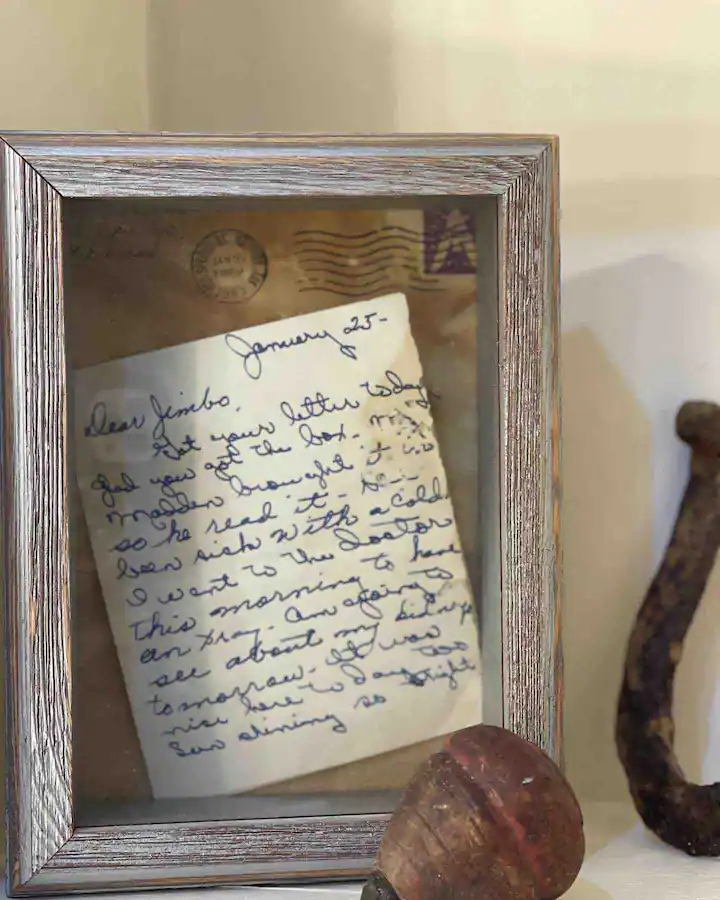 January 25-
Dear Jimbo,
Got your letter today.
Glad you got the box.
Malden brought it
so he read it -
been sick with a cold.
I went to the Doctor
this morning to have
an xray. Am going to
see about my kidneys
tomorrow. It was
nice here to day too
Sun shining so bright